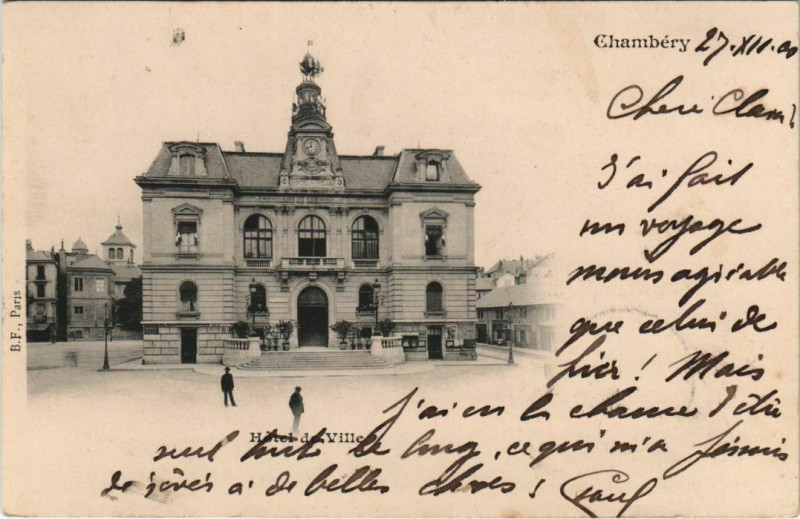 Chambéry 27.XII.00
Cheri
J'ai fait
un voyage
moins agréable
que celui de
hier ! Mais
j'ai eu la chance d'être
seul tout le long, ce qui m'a permis
de rêver à de belles choses ! Paul
Hôtel de Ville
B.F., Paris